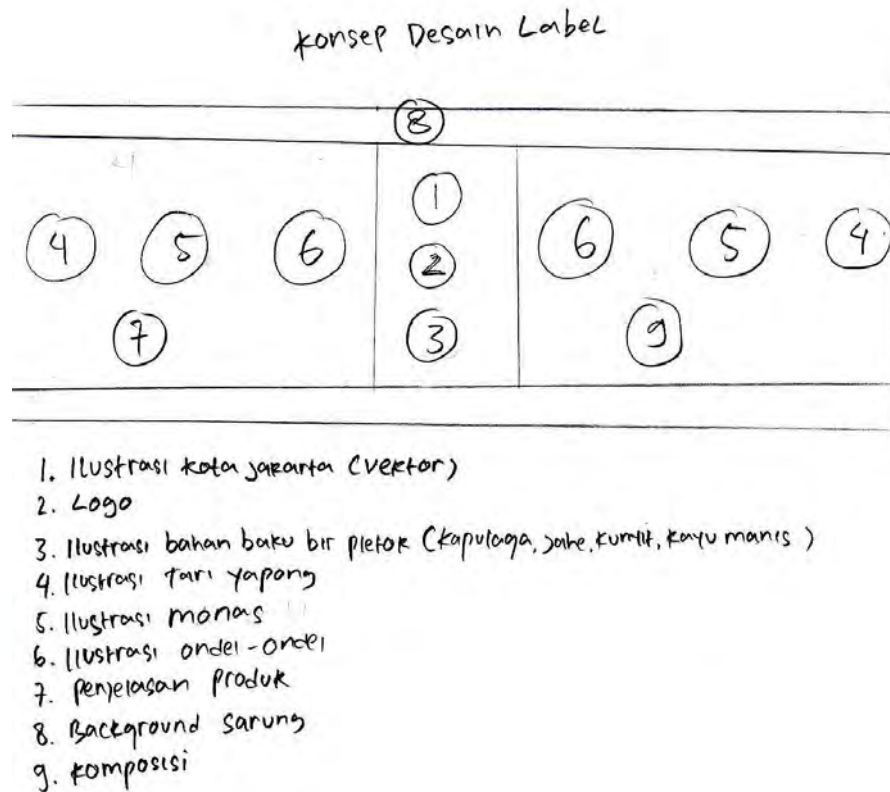 Konsep Desain Label
8
1
4 5 6 2 6 5 4
7 3 9
1. Ilustrasi kota jakarta (vektor)
2. Logo
3. Ilustrasi bahan baku bir pletok (kapulaga, jahe, kunyit, kayu manis)
4. Ilustrasi tari yapong
5. Ilustrasi monas
6. Ilustrasi ondel-ondel
7. Penjelasan produk
8. Background sarung
9. komposisi